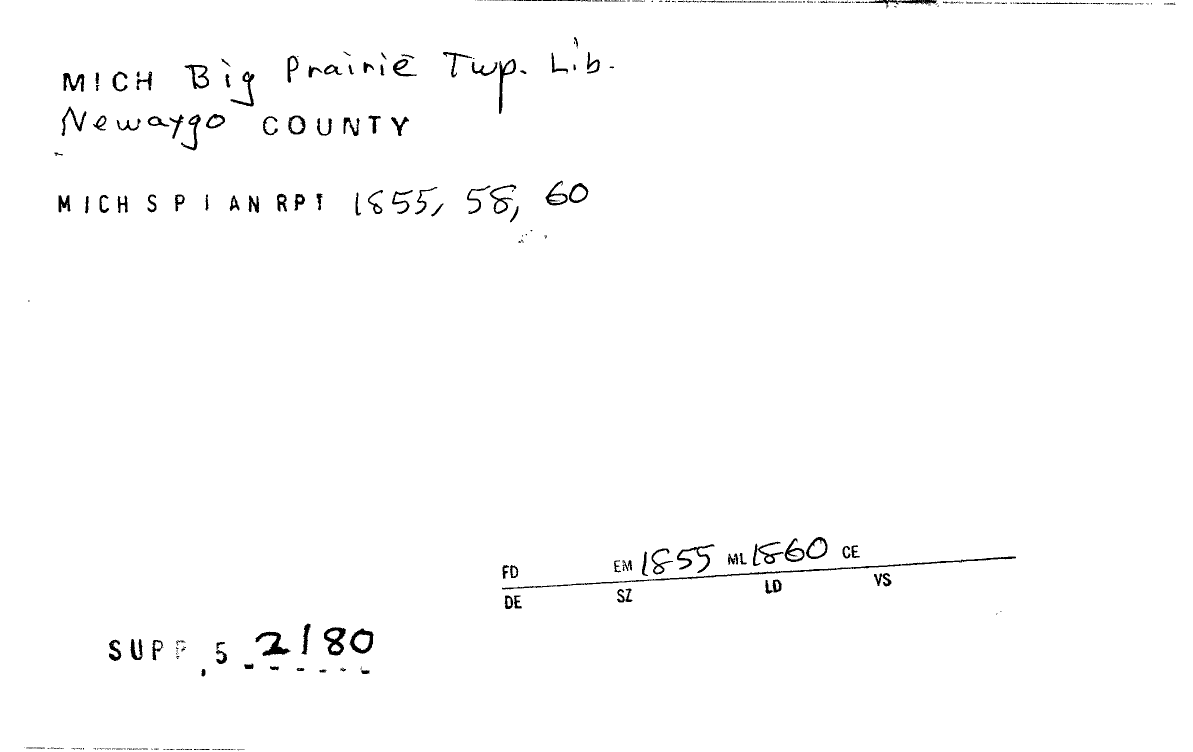 MICH Big Prairie Twp. Lib.
Newaygo COUNTY
MICH S P I AN RPT 1855, 58, 60
FD EM 1855 ML 1860 CE
DE SZ LD VS
SUPP, 5 2/80